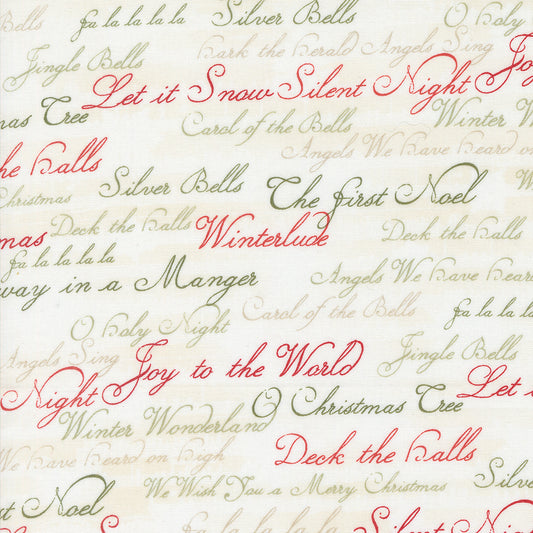 Bells fa la la la la Silver Bells O Holy
Hark the Herald Angels Sing
Jingle Bells Joy
Let it Snow Silent Night
mas Tree Carol of the Bells Winter W
Angels We Have heard on
he Halls
Silver Bells The First Noel W
Christmas
Deck the Halls Winterlude Deck the Halls
mas
fa la la la la
way in a Manger Angels We Have heard
Carol of the Bells fa la la la
O Holy Night
Angels Sing Joy to the World Jingle Bells
Night Let i
O Christmas Tree
Winter Wonderland
We Have heard on High Deck the Halls
Silver
We Wish You a Merry Christmas
st Noel
fa la la la la Silent Night